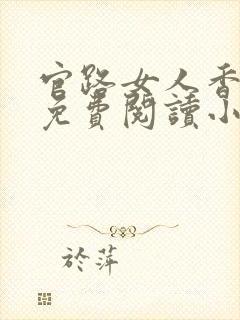 官路女人香
免費閱讀小
於萍